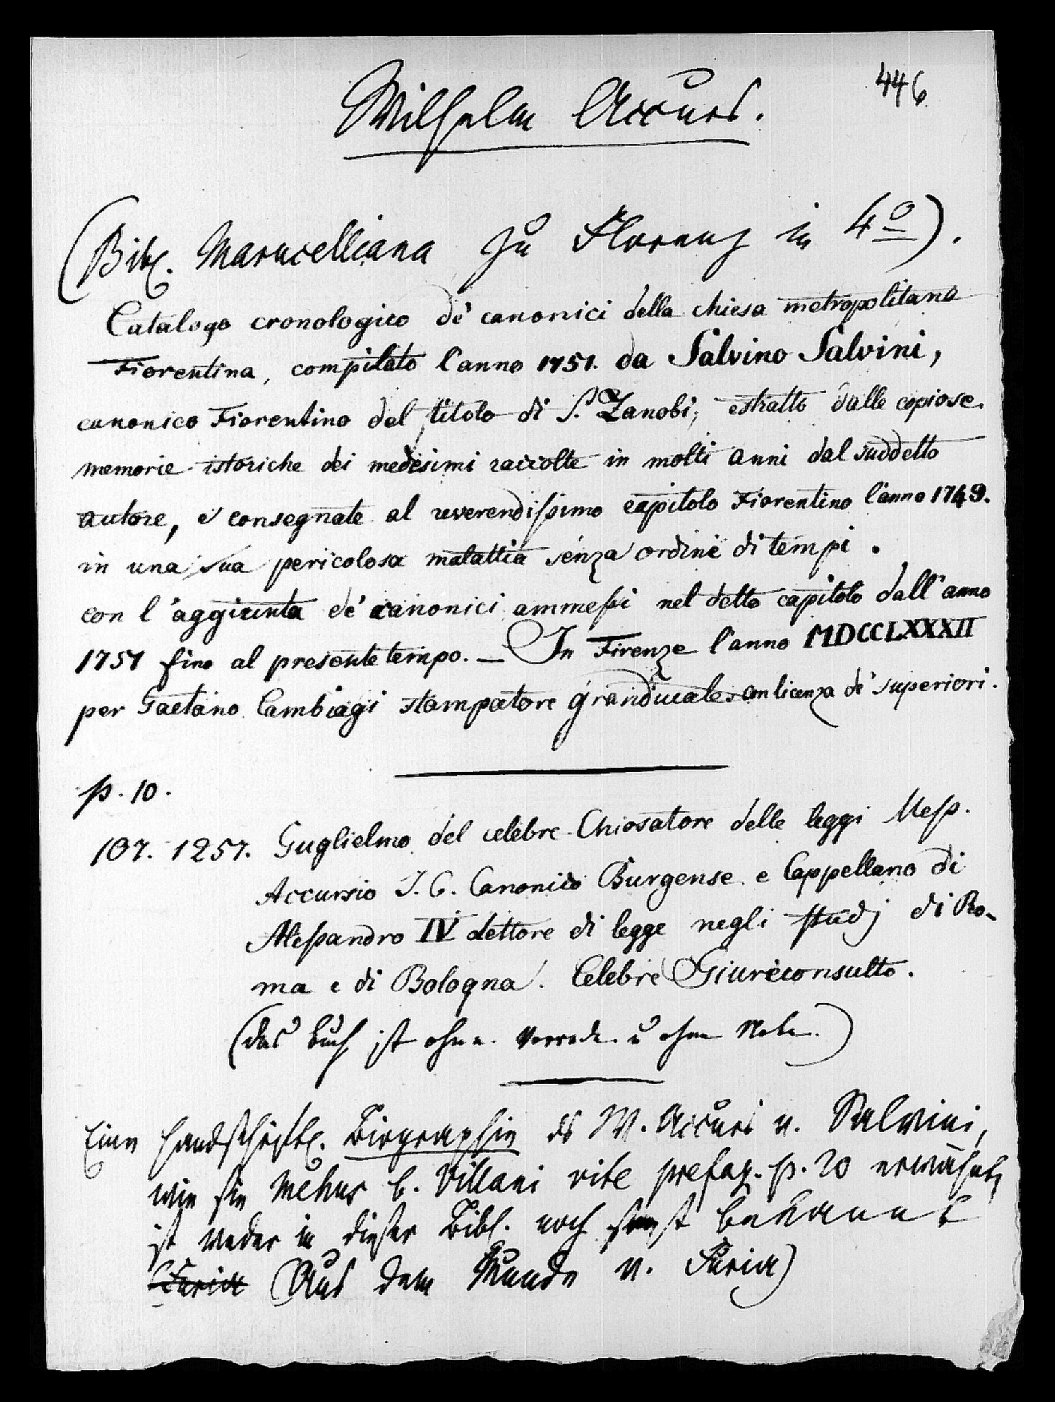 446
Wilhelm Accurs.
(Bibl. Marucelliana zu Florenz in 4o).
Catalogo cronologico de' canonici della chiesa metropolitana
Fiorentina, compilato l'anno 1751. da Salvino Salvini,
canonico Fiorentino del titolo di S. Zanobi, estratto dalle copiose
memorie istoriche dei medesimi raccolte in molti anni dal suddetto
autore, e consegnate al reverendissimo capitolo Fiorentino l'anno 1749.
in una sua pericolosa malattia senza ordine di tempi.
con l'aggiunta de' canonici ammessi nel detto capitolo dall'anno
1751 fino al presente tempo. — In Firenze l'anno MDCCLXXXII
per Gaetano Cambiagi stampatore granducale con licenza de' superiori.
p. 10.
107. 1257. Guglielmo del celebre Chiosatore delle leggi Mess.
Accursio J. C. Canonico Burgense e Cappellano di
Alessandro IV dettore di legge negli studj di Ro-
ma e di Bologna. Celebre Giureconsulto.
(das Buch ist ohne Vorrede u ohne Note.)
Eine handschriftl. Biographie des W. Accursi v. Salvini,
wie sie Mehus b. Villani vite prefaz. p. 20 erwähnt,
ist weder in dieser Bibl. noch sonst bekannt
(Furia (Aus dem Munde v. Furia)